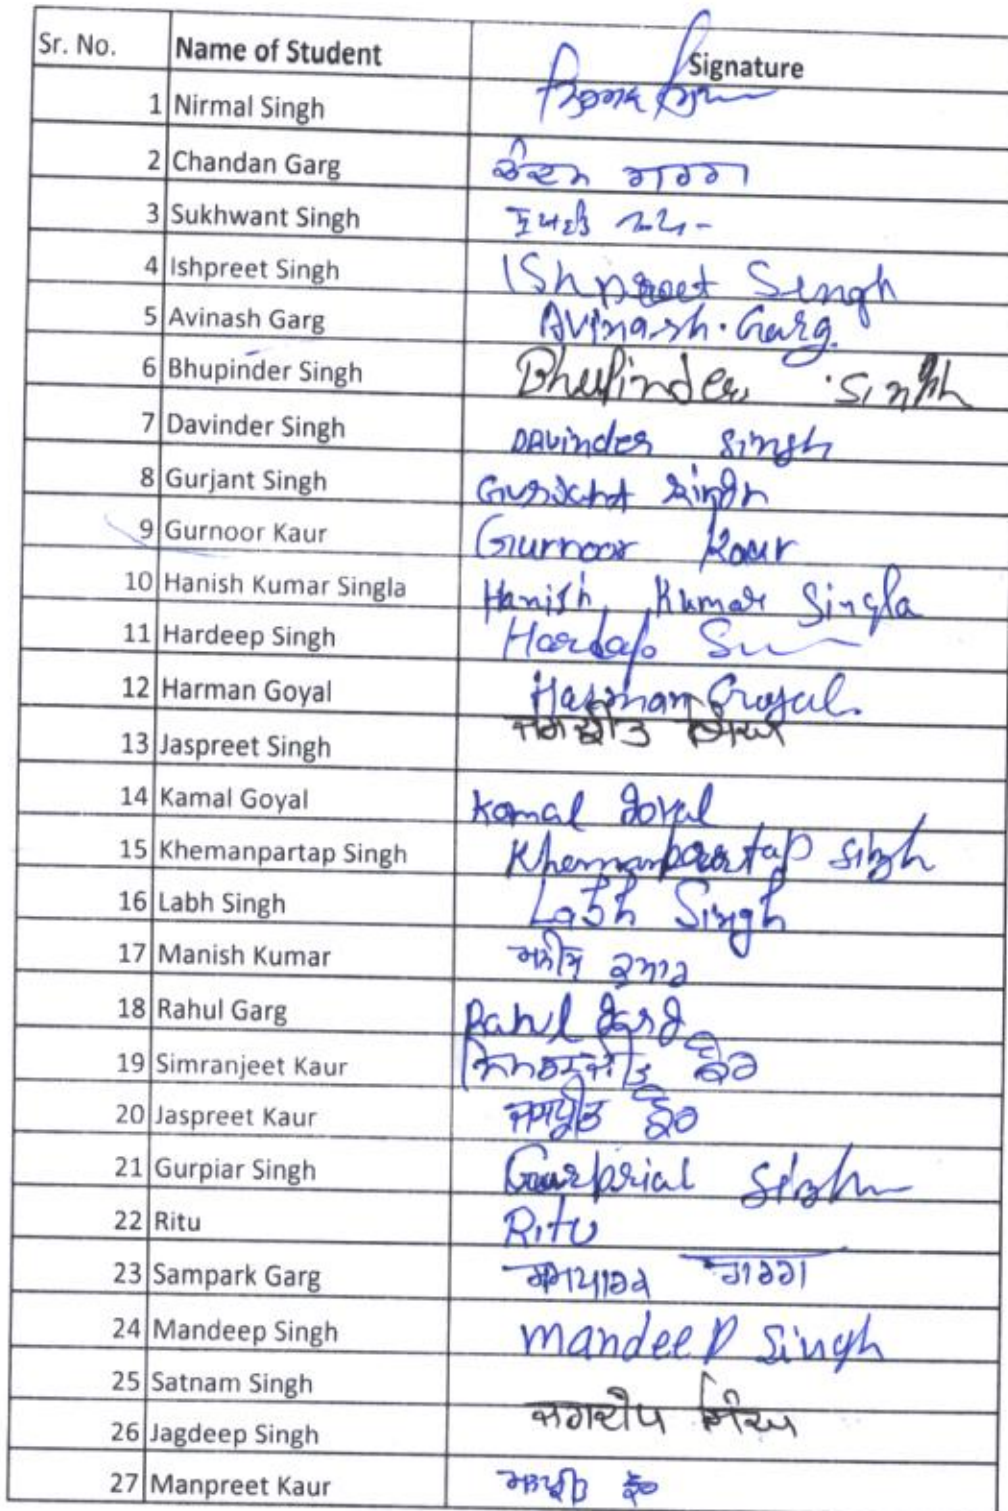 Sr. No. Name of Student Signature
1 Nirmal Singh
2 Chandan Garg ਚੰਦਨ ਗਰਗ
3 Sukhwant Singh
4 Ishpreet Singh Ishpreet Singh
5 Avinash Garg Avinash. Garg.
6 Bhupinder Singh Bhupinder Singh
7 Davinder Singh Davinder Singh
8 Gurjant Singh Gurjant Singh
9 Gurnoor Kaur Gurnoor Kaur
10 Hanish Kumar Singla Hanish Kumar Singla
11 Hardeep Singh
12 Harman Goyal Harman Goyal.
13 Jaspreet Singh ਸਿੰਘ
14 Kamal Goyal Kamal Goyal
15 Khemanpartap Singh Khemanpartap Singh
16 Labh Singh Labh Singh
17 Manish Kumar ਕੁਮਾਰ
18 Rahul Garg Rahul Garg
19 Simranjeet Kaur ਸਿਮਰਨਜੀਤ ਕੌਰ
20 Jaspreet Kaur ਜਸਪ੍ਰੀਤ ਕੌਰ
21 Gurpiar Singh Singh
22 Ritu Ritu
23 Sampark Garg ਗਰਗ
24 Mandeep Singh Mandeep Singh
25 Satnam Singh
26 Jagdeep Singh ਜਗਦੀਪ ਸਿੰਘ
27 Manpreet Kaur